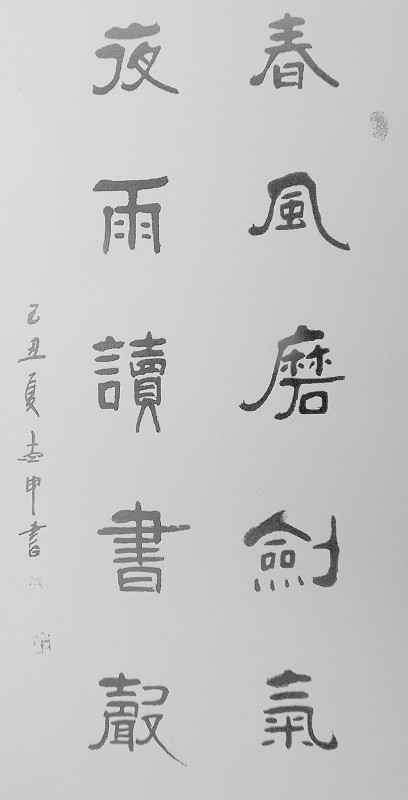 春風磨劍氣
夜雨讀書聲
己丑夏志申書